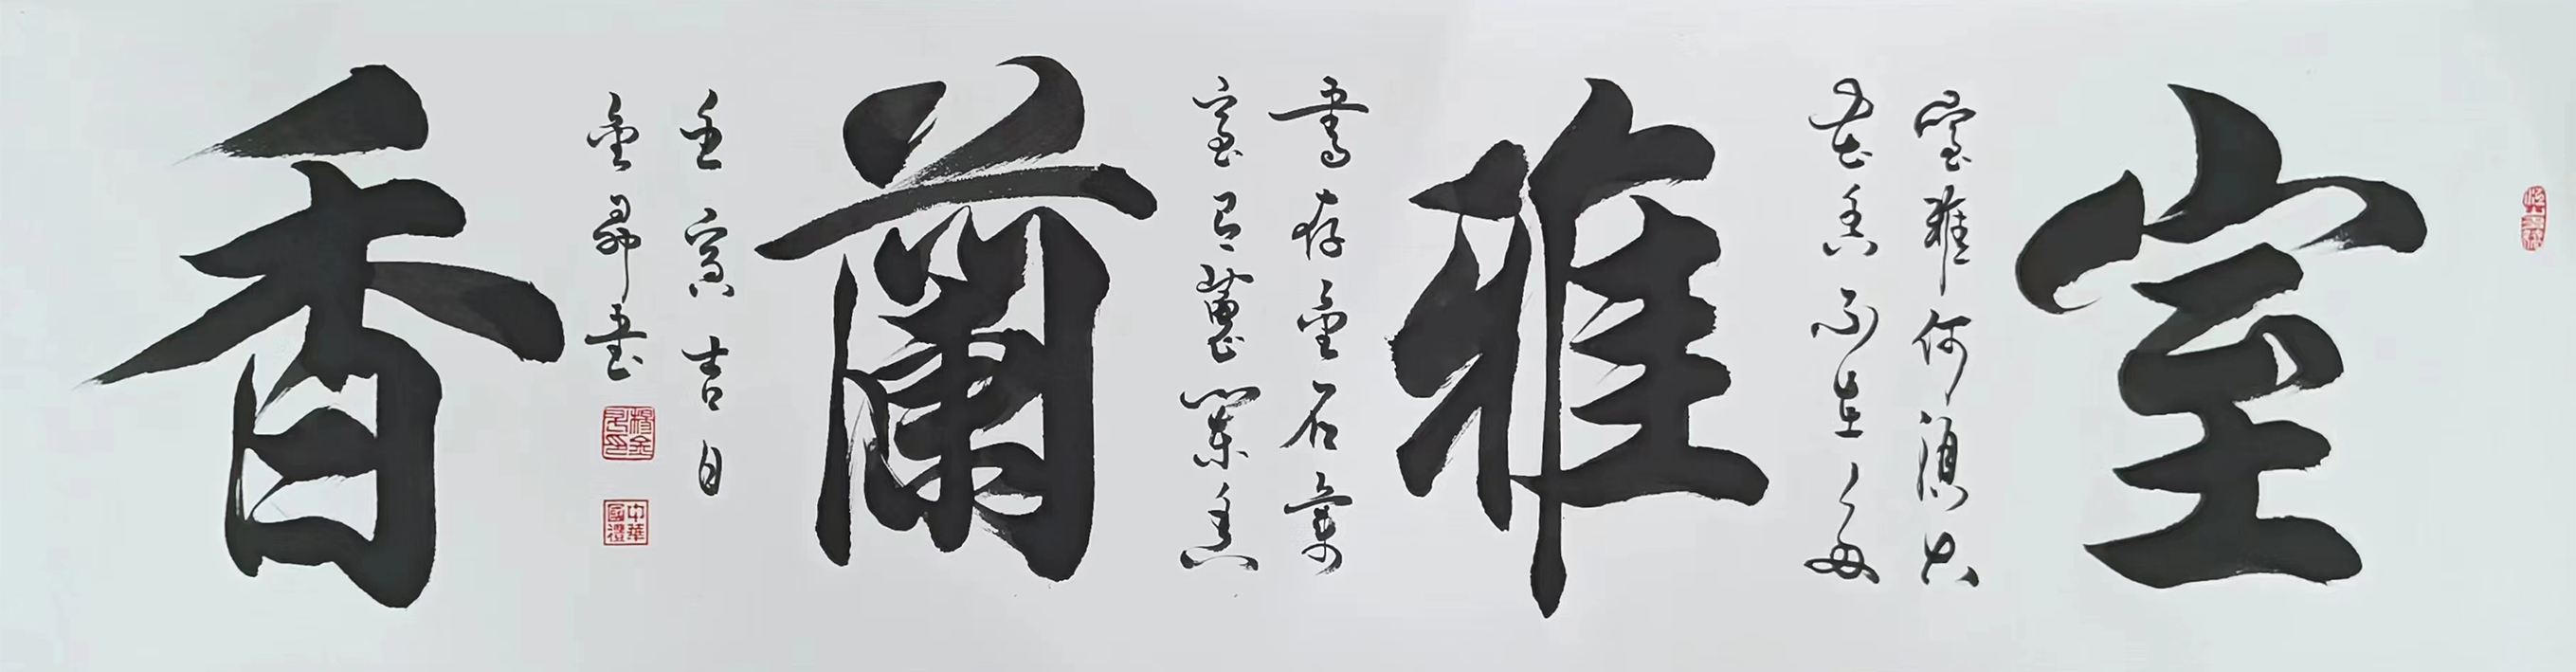 室雅蘭香
室雅何須大
花香不在多
書存金石氣
室有蕙蘭香
壬寅吉日
金書
中華國禮